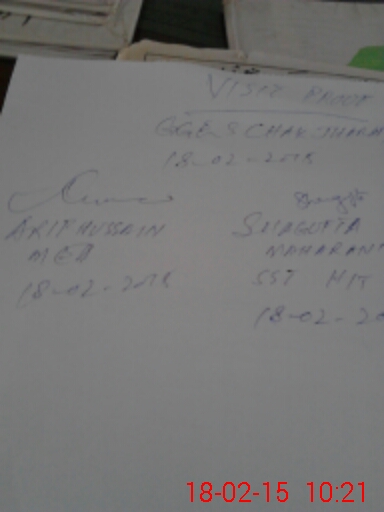 VISIT PROOF
GGES CHAK JHARA
18-02-2015
ARIF HUSSAIN
MEA
18-02-2015
SHAGUFTA
MAHARAN
SST HIT
18-02-20
18-02-15 10:21